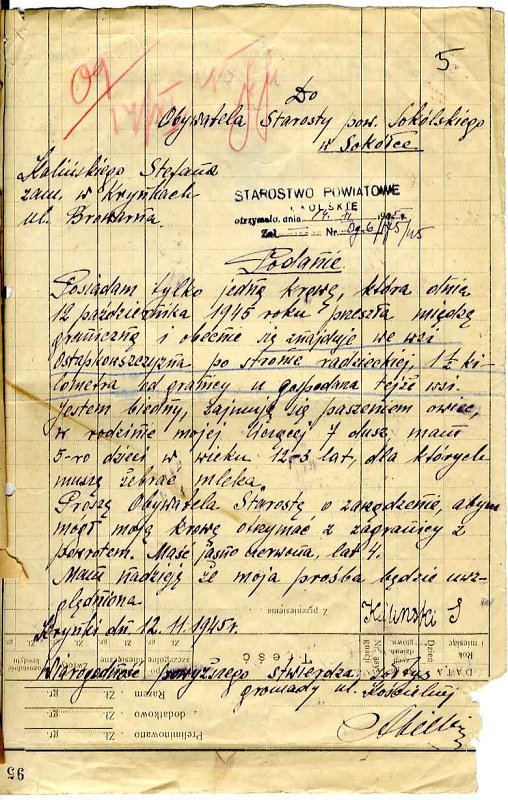 5
Do
09
Obywatela Starosty pow. Sokólskiego
w Sokółce
Stefana
zam. w Krynkach
ul. Browarna.
STAROSTWO POWIATOWE
OLSKIE
otrzymało, dnia 14. 11. 1945 r.
Zał. Nr. Og. 6/175/45
Podanie
Posiadam tylko jedną krowę, która dnia
12 października 1945 roku przeszła między
graniczną i obecnie się znajduje we wsi
Ostapkowszczyzna po stronie radzieckiej, 1½ ki-
lometra od granicy u gospodarza tejże wsi.
Jestem biedny, zajmuję się paszeniem owiec,
w rodzinie mojej liczącej 7 dusz, mam
5-ro dzieci w wieku 12-3 lat, dla których
muszę żebrać mleka.
Proszę Obywatela Starostę o zarządzenie, abym
mógł moją krowę otrzymać z zagranicy z
powrotem. Maść jasno czerwona, lat 4.
Mam nadzieję że moja prośba będzie uwz-
ględniona.
Z przeniesienia
Krynki dn 12.11.1945 r.
DATA
Rok i miesiąc
Dzień
TREŚĆ
Zł. gr.
Wiarogodność powyższego stwierdza sołtys
gromady ul. Kościelnej
Razem
Zł. gr.
dodatkowo
Zł. gr.
Preliminowano
Zł. gr.
95